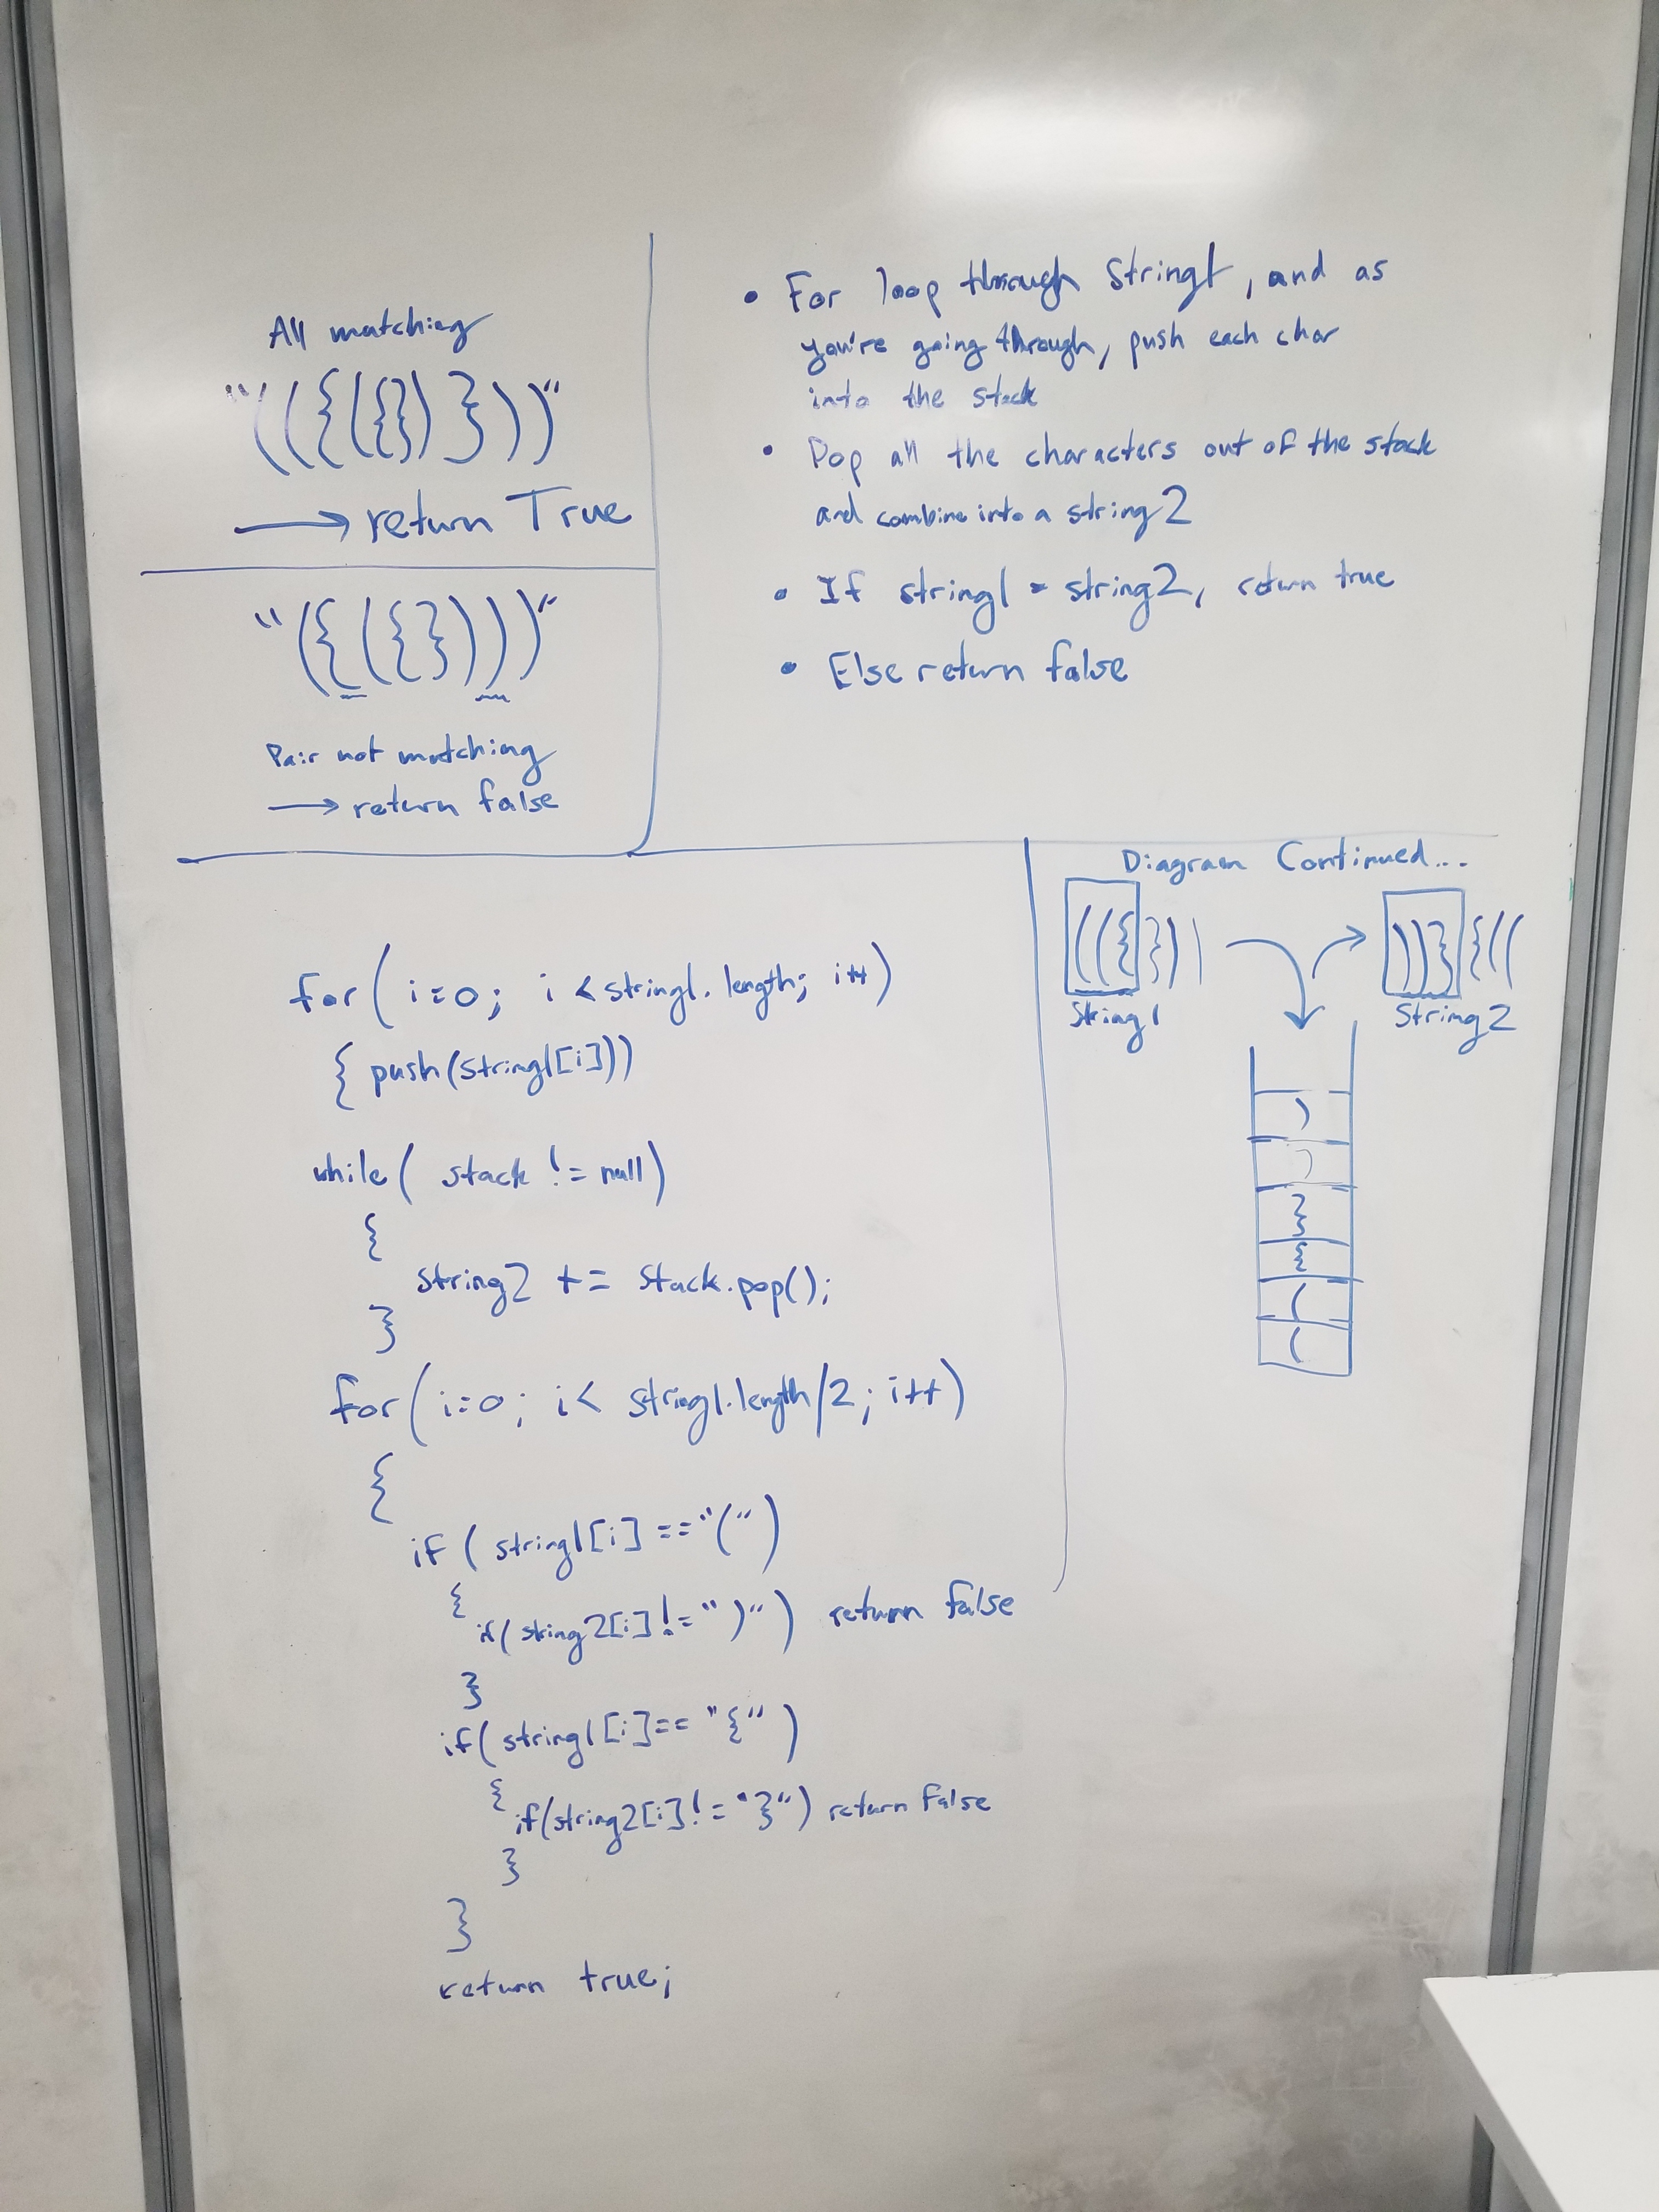 All matching
"(({({})}))"
→ return True
"({({})))"
Pair not matching
→ return false
• For loop through String1, and as
you're going through, push each char
into the stack
• Pop all the characters out of the stack
and combine into a string2
• If string1 = string2, return true
• Else return false
for( i=0; i < string1.length; i++)
{ push(string1[i]))
while( stack != null)
{
string2 += stack.pop();
}
for(i=0; i< string1.length/2; i++)
{
if ( string1[i] == "(")
{
if( string2[i] != ")") return false
}
if( string1[i]== "{" )
{
if(string2[i] != "}") return false
}
}
return true;
Diagram Continued...
(({}))
String1
))}{((
String2
)
)
}
{
(
(